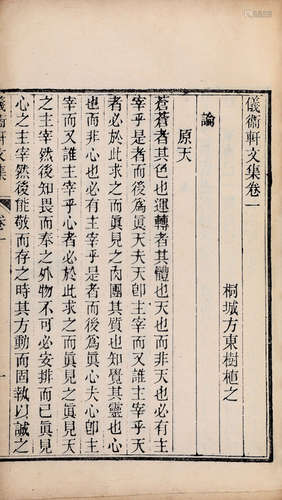 儀衛軒文集卷一
桐城方東樹植之
論
原天
蒼蒼者其色也運轉者其體也天也而非天也必有主
宰乎是者而後為眞天夫天卽主宰也而又誰主宰乎天
者必於此求之而眞見之肉團其質也知覺其靈也心
也而非心也必有主宰乎是者而後為眞心夫心卽主
宰而又誰主宰乎心者必於此求之而眞見之眞見天
之主宰然後知畏而奉之外物不可必安排而已眞見
心之主宰然後能敬而存之時其方動而固執以誠之
儀衛軒文集
卷一
一